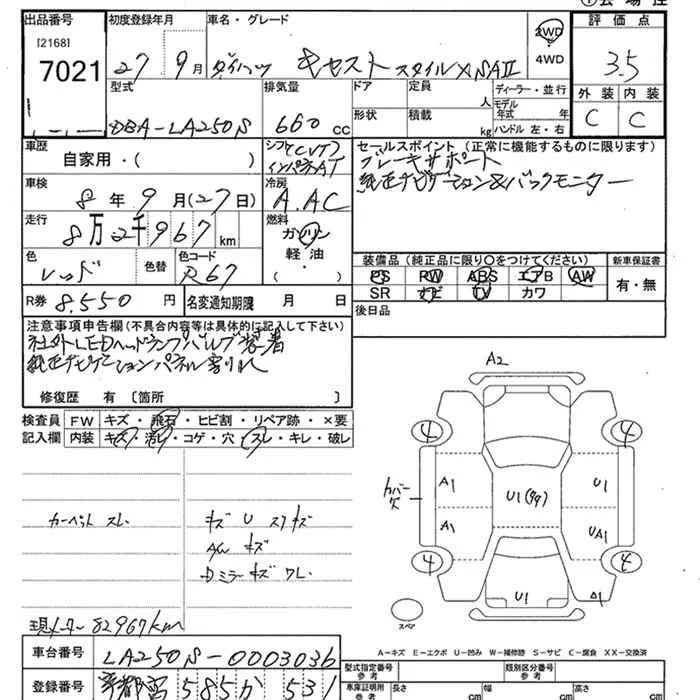 出品番号
[2168]
7021
初度登録年月
27 9月
車名・グレード
ダイハツ キャスト スタイルX SAⅡ
2WD
4WD
評価点
3.5
外装 内装
C C
型式
DBA-LA250S
排気量
660 cc
ドア
形状
定員
人
積載
kg
ディーラー・並行
モデル
年式 年
ハンドル 左・右
車歴
自家用・( )
シフト CVT
インパネAT
セールスポイント (正常に機能するものに限ります)
ブレーキサポート
純正ナビゲーション&バックモニター
車検
8年9月(27日)
冷房
A.AC
走行
8万2千967km
燃料
ガソリン
軽油・
( )
色
レッド
色替
色コード
R67
装備品 (純正品に限り○をつけてください)
PS PW ABS エアB AW
SR ナビ TV カワ
新車保証書
有・無
R券 8.550 円
名変通知期限 月 日
後日品
注意事項申告欄(不具合内容等は具体的に記入して下さい)
社外LEDヘッドランプバルブ装着
純正ナビゲーションパネル割れ
修復歴 有 〔箇所 〕
検査員 FW キズ・飛石・ヒビ割・リペア跡・×要
記入欄 内装 キズ・汚レ・コゲ・穴・スレ・キレ・破レ
カーペット スレ
キズ U スリキズ
A/W キズ
Dミラーキズ ワレ
現メーター 82967km
A2
4 4
カバー欠
A1 U1(99) U1
A1 UA1
4 4
U1 A1
スペア
A-キズ E-エクボ U-凹み W-補修跡 S-サビ C-腐食 XX-交換済
車台番号 LA250S-0003036
登録番号 宇都宮 585 か 531
型式指定番号
参考
類別区分番号
参考
車庫証明用
参考
長さ cm
幅 cm
高さ cm